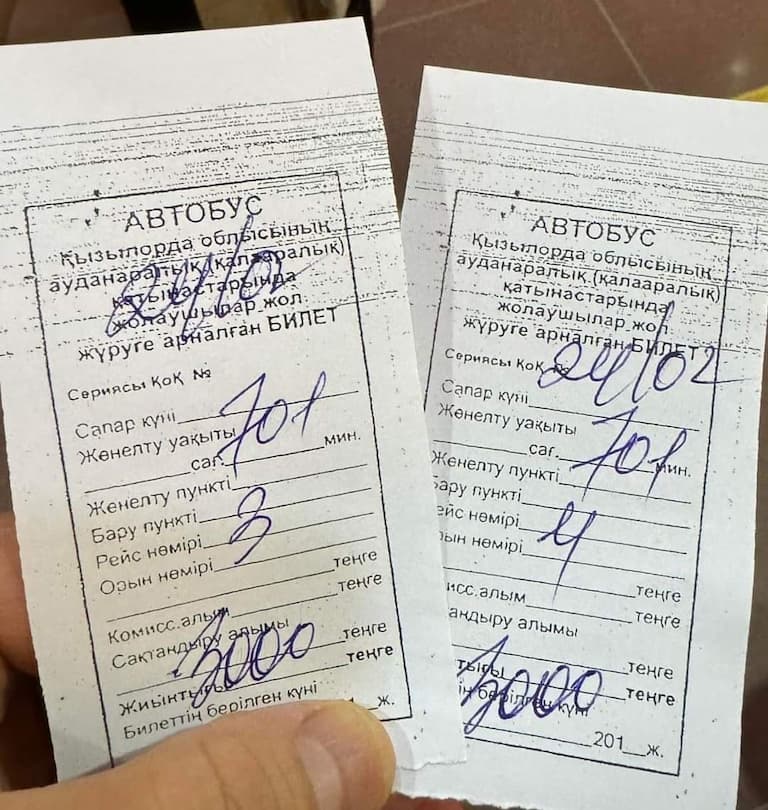 АВТОБУС
Қызылорда облысының
ауданаралық (қалааралық)
қатынастарында
жолаушылар жол
жүруге арналған БИЛЕТ
24/02
Сериясы ҚоҚ №
Сапар күні
701
Жөнелту уақыты
сағ. мин.
Жөнелту пункті
Бару пункті
3
Рейс нөмірі
Орын нөмірі
теңге
Комисс.алым теңге
Сақтандыру алымы
3000 теңге
Жиынтығы теңге
Билеттің берілген күні
ж.
АВТОБУС
Қызылорда облысының
ауданаралық (қалааралық)
қатынастарында
жолаушылар жол
жүруге арналған БИЛЕТ
Сериясы ҚоҚ №
24/02
Сапар күні
Жөнелту уақыты
701
сағ. мин.
Жөнелту пункті
Бару пункті
ейс нөмірі 4
орын нөмірі
теңге
исс.алым теңге
андыру алымы
теңге
тығы 3000 теңге
ің берілген күні
201 ж.